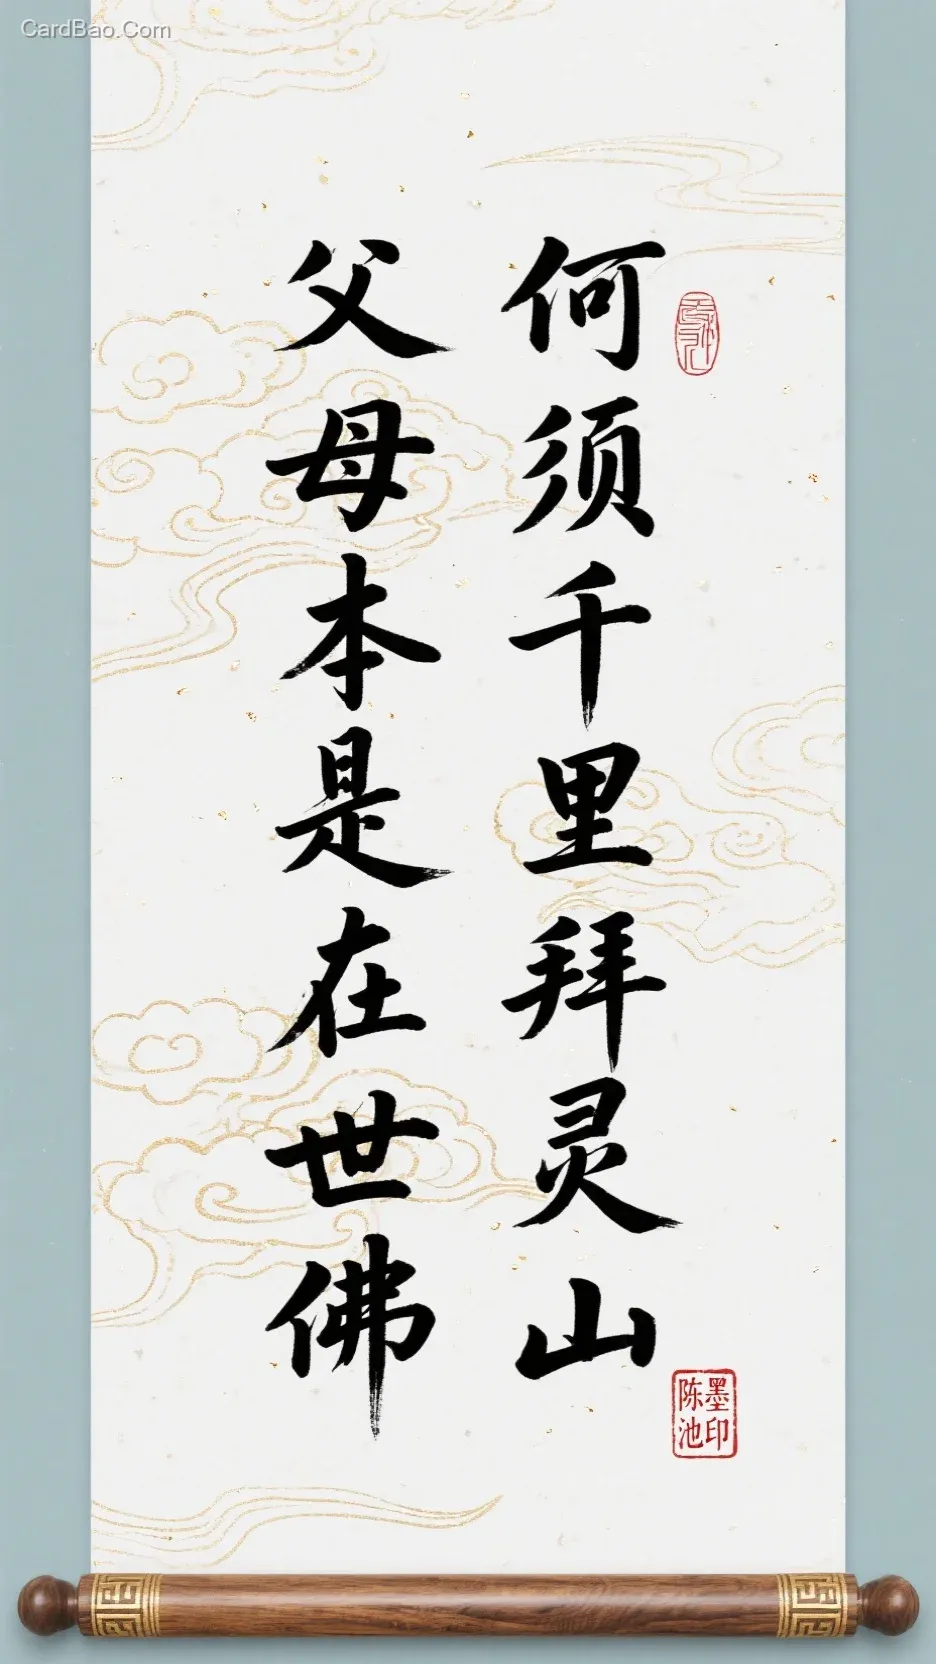 CardBao.Com
何须千里拜灵山
父母本是在世佛
墨印
陈池